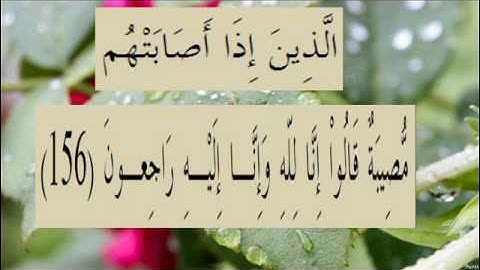 الَّذِينَ إِذَا أَصَابَتْهُم
مُّصِيبَةٌ قَالُواْ إِنَّا لِلّهِ وَإِنَّـا إِلَيْـهِ رَاجِعـونَ (156)